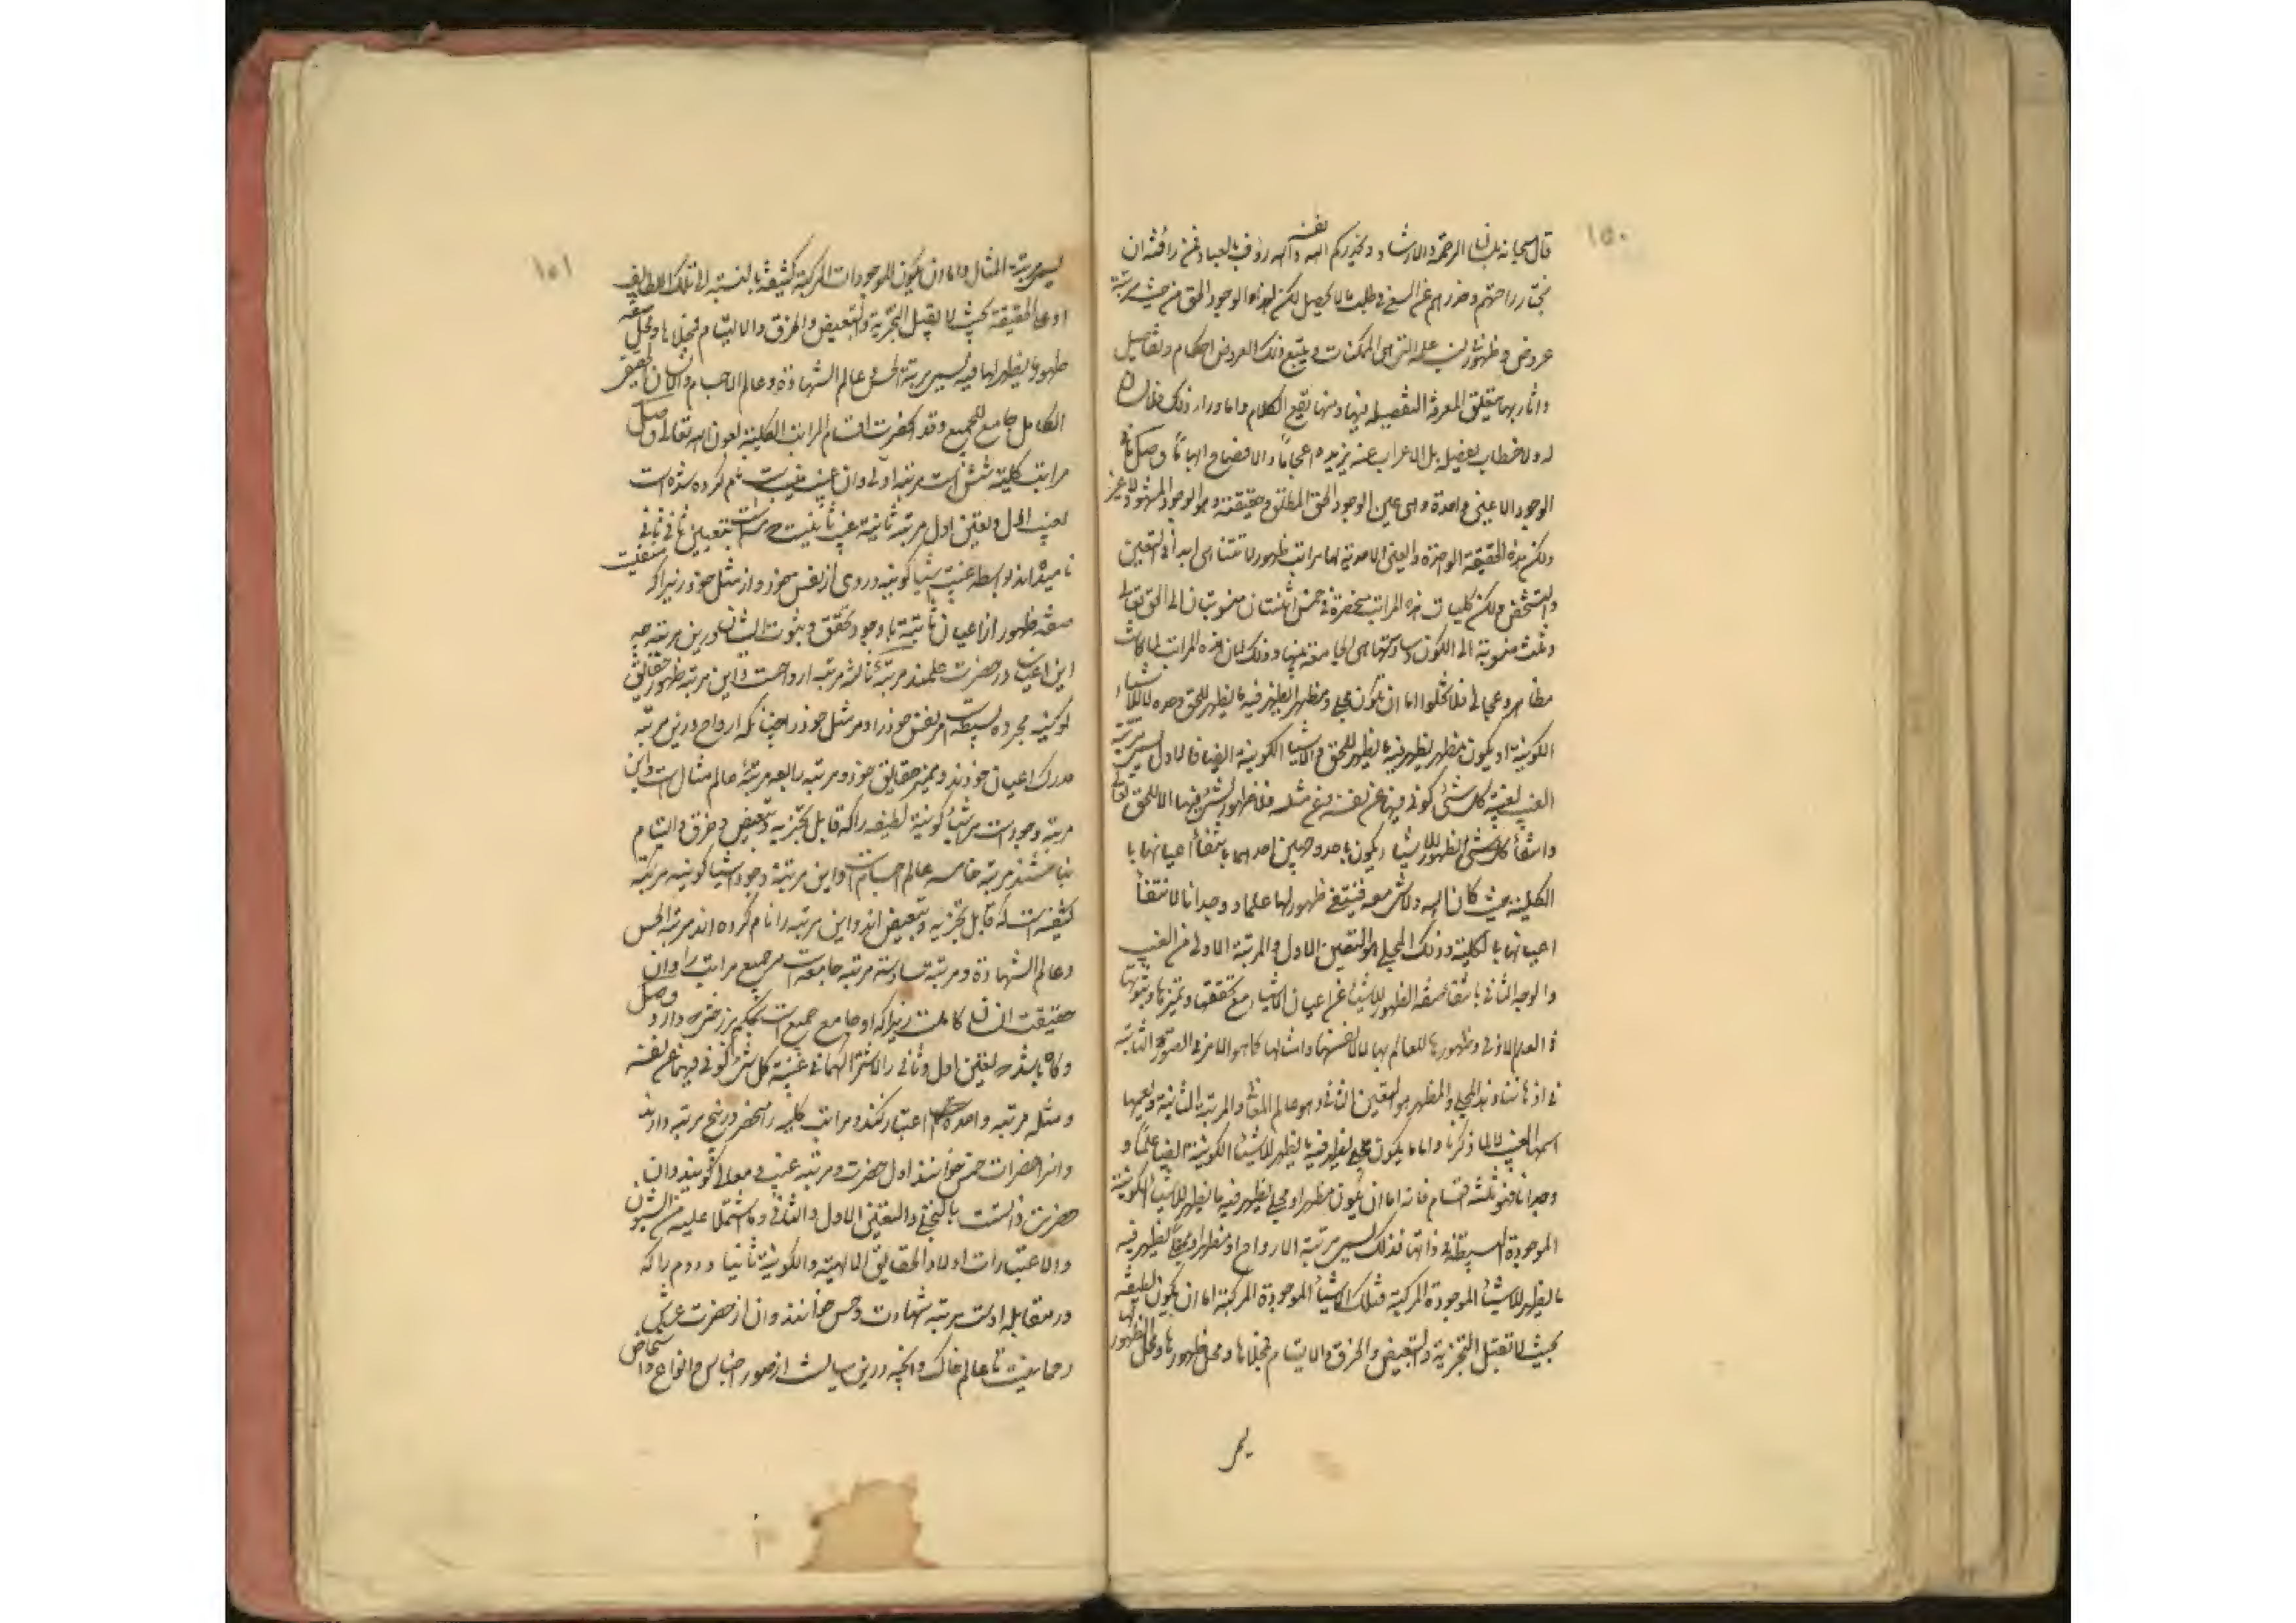 ١٥٠
قال سبحانه بلسان الرحمة والارشاد ويحذركم الله نفسه والله رؤف بالعباد فمن رافته ان
يختار راحتهم وحذرهم عن السعى فى طلب ما لا يحصل لكن لهذا الوجود الحق من حيث مرتبة
عروض وظهور نسب علمه التى هى الممكنات ويتبع ذلك العروض احكام وتفاصيل
واثار بها يتعلق المعرفة التفصيلية وفيها ومنها يقع الكلام واما وراء ذلك فلا لسان
له ولا خطاب يفصله بل الاعراب عنه يزيده اعجاما والافصاح ابهاما وصل ما فى
الوجود الا عين واحدة وهى عين الوجود الحق المطلق وحقيقته وهو الوجود المشهود لا غير
ولكن هذه الحقيقة الواحدة والعين الاحدية لها مراتب ظهور لا تتناهى ابدا فى التعين
والتشخص ولكن كليات هذه المراتب منحصرة فى خمس اثنتان منسوبتان الى الحق تعالى
وثلث منسوبة الى الكون وسادستها هى الجامعة بينها وذلك لان هذه المراتب لما كانت
مظاهر ومجالى فلا تخلوا اما ان تكون مجلى ومظهرا يظهر فيه ما يظهر للحق وحده لا للاشياء
الكونية او يكون مظهر يظهر فيه ما يظهر للحق وللاشياء الكونية ايضا فالاول يسمى مرتبة
الغيب لغيبة كل شئ كونى فيها عن نفسه وعن مثله فلا ظهور لشئ فيها الا للحق تعالى
وانتفاء كل شئ الظهور للاشياء يكون باحد وجهين احدهما بانتفاء اعيانها با
الكلية حيث كان الله ولا شئ معه فينتفى ظهور لها علما ووجدانا لانتفاء
اعيانها بالكلية وذلك المجلى هو التعين الاول والمرتبة الاولى من الغيب
والوجه الثانى بانتفاء صفة الظهور للاشياء عن اعيان الاشياء مع تحققها وتميزها وثبوتها
فى العلم الازلى وظهورها للعالم بها لا لانفسها وامثالها كما هو الامر فى الصور الثابتة
فى اذهاننا وهذا المجلى والمظهر هو التعين الثانى وهو عالم المعانى والمرتبة الثانية ويعمها
اسم الغيب لما ذكرنا واما ما يكون مجلى يظهر فيه ما يظهر للاشياء الكونية ايضا علما و
وجدانا فهو ثلثة اقسام فانه اما ان يكون مظهرا ومجلى يظهر فيه ما يظهر للاشياء الكونية
الموجودة البسيطة فى ذاتها فذلك يسمى مرتبة الارواح او مظهرا ومجلى يظهر فيه
ما يظهر للاشياء الموجودة المركبة فتلك الاشياء الموجودة المركبة اما ان يكون لطيفة
بحيث لا تقبل التجزية والتبعيض والخرق والالتيام فمجلاها ومحل ظهورها ومحل الظهور لها
يسمى
١٥١
يسمى مرتبة المثال واما ان يكون الموجودات المركبة كثيفة بالنسبة الى تلك اللطايف
او على الحقيقة بحيث لا يقبل التجزية والتبعيض والخرق والالتيام فمجلاها ومحل صفة
ظهور ما يظهر لها فيه يسمى مرتبة الحس وعالم الشهادة وعالم الاجسام والانسان الحقيقى
الكامل جامع للجميع وقد انحصرت اقسام المراتب الكلية بعون الله تعالى وصل
مراتب كليه شش است مرتبه اولى وان غيب مغيب است نام كرده شده است
بغيب اول وتعين اول مرتبه ثانيه غيب ثانيست و است بتعيين ثانى ثانى
ناميده اند بواسطه غيبت اشيا كونيه در وى از نفس خود و از مثل خود زيرا كه منتفيست
صفه ظهور از اعيان ثابته با وجود تحقق وثبوت ايشان درين مرتبه چه
اين اعيان در حضرت علمند مرتبه ثالثه مرتبه ارواحست و اين مرتبه ظهور حقايق
كونيه مجرده بسيطه است مر نفس خود را و مر مثل خود را چنانكه ارواح درين مرتبه
مدرك اعيان خودند و مميز حقايق خود و مرتبه رابعه مرتبه عالم مثال است و اين
مرتبه وجود است مر اشيا كونيه لطيفه را كه قابل تجزيه و تبعيض و خرق و التيام
نباشند مرتبه خامسه عالم اجسام است و اين مرتبه وجود اشيا كونيه مركبه
كثيفه است كه قابل تجزيه و تبعيض اند و اين مرتبه را نام كرده اند مرتبه الحس
وعالم الشهادة و مرتبه سادسه مرتبه جامعه است مر جميع مراتب را و ان
حقيقت انسان كاملست زيرا كه او جامع جميع است بحكم برزخيتى كه دارد وصل
و گاه باشد كه تعين اول و ثانى را لاشتراكهما فى غيبة كل شئ كونى فيهما عن نفسه
ومثله مرتبه واحده اعتبار كنند و مراتب كليه را منحصر در پنج مرتبه دارند
و انرا حضرات خمس خوانند اول حضرت و مرتبه غيب و معانى گويند و ان
حضرت ذاتست بالتجلى والتعين الاول والثانى وما اشتملا عليه من الشيون
والاعتبارات اولا والحقايق الالهية والكونية ثانيا و دوم را كه
در مقابله اوست مرتبه شهادت و حس خوانند و ان از حضرت عرش
رحمانيست تا عالم خاك و انچه درين ميانست از صور اجناس و انواع و اشخاص